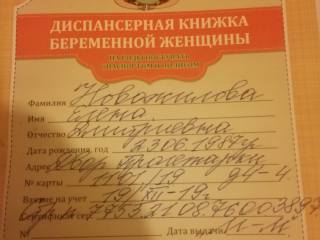 ДИСПАНСЕРНАЯ КНИЖКА
БЕРЕМЕННОЙ ЖЕНЩИНЫ
Фамилия Новожилова
Имя Елена
Отчество Дмитриевна
Дата рождения, год 23.06.1987г
Адрес Двор Пролетарки
№ карты 1191/19 94-4
Взята на учет 19/XII-19г
Дата выдачи